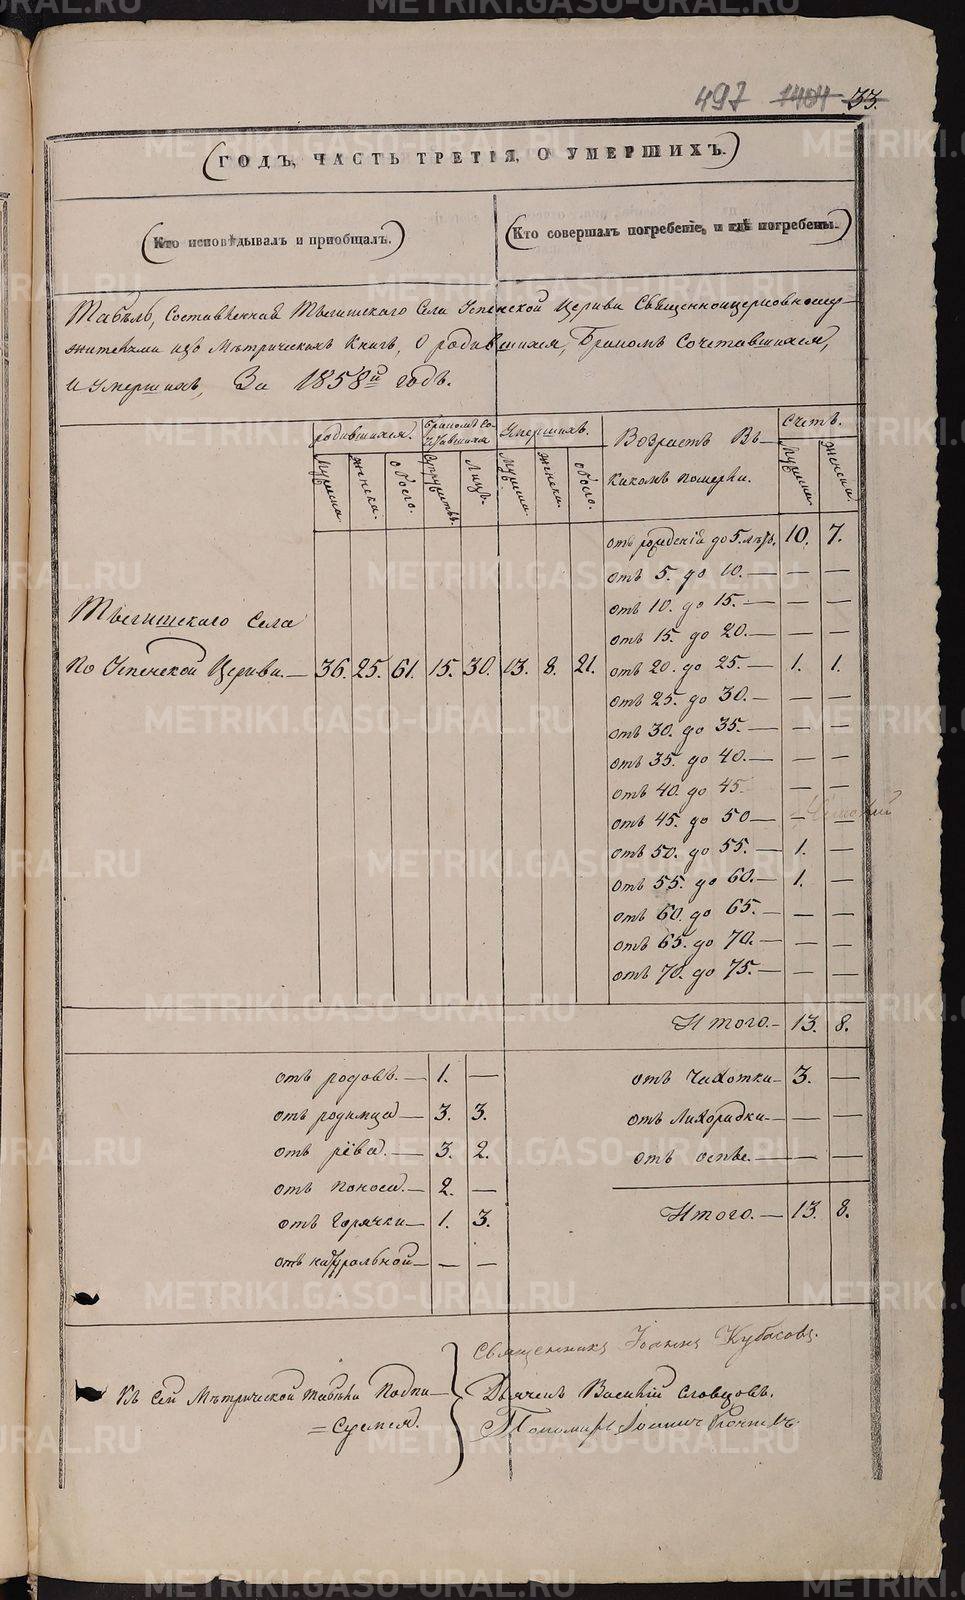 497 1404 33.
ГОДЪ, ЧАСТЬ ТРЕТІЯ, О УМЕРШИХЪ.
Кто исповѣдывалъ и пріобщалъ.
Кто совершалъ погребеніе, и гдѣ погребены.
Табель, Составленная Тыгишскаго Села Успенской Церкви Священноцерковнослу-
жителями изъ Мѣтрическихъ Книгъ, о родившихся, Бракомъ Сочетавшихся,
и умершихъ, За 1858й годъ.
родившихся. Бракомъ Со-четавшихся Умершихъ. Возрастъ Въ какомъ померли. Счетъ.
Мужеска. Женска. обоего. Супружествъ. Лицъ. Мужеска. Женска. обоего. Мужеска. Женска.
отъ рожденія до 5. лѣтъ. 10. 7.
отъ 5. до 10. — — —
отъ 10. до 15. — — —
Тыгишскаго Села
отъ 15. до 20. — — —
По Успенской Церкви. — 36. 25. 61. 15. 30. 13. 8. 21. отъ 20. до 25. — 1. 1.
отъ 25. до 30. — — —
отъ 30. до 35. — — —
отъ 35. до 40. — — —
отъ 40. до 45 — —
отъ 45. до 50 — — —
отъ 50. до 55. — 1. —
отъ 55. до 60. — 1. —
отъ 60. до 65. — — —
отъ 65. до 70. — — —
отъ 70. до 75. — — —
Итого. — 13. 8.
отъ родовъ. — 1. —
отъ чахотки — 3. —
отъ родимца — 3. 3.
отъ лихорадки — — —
отъ рёва. — 3. 2.
отъ оспы. — — —
отъ поноса. — 2. —
Итого. — 13. 8.
отъ горячки — 1. 3.
отъ натуральной — — —
Священникъ Іоаннъ Кубасовъ.
Къ Сей Мѣтрической табели Подпи-
=Суемся.
Дьячекъ Василій Словцовъ.
Пономарь Іоаннъ
METRIKI.GASO-URAL.RU